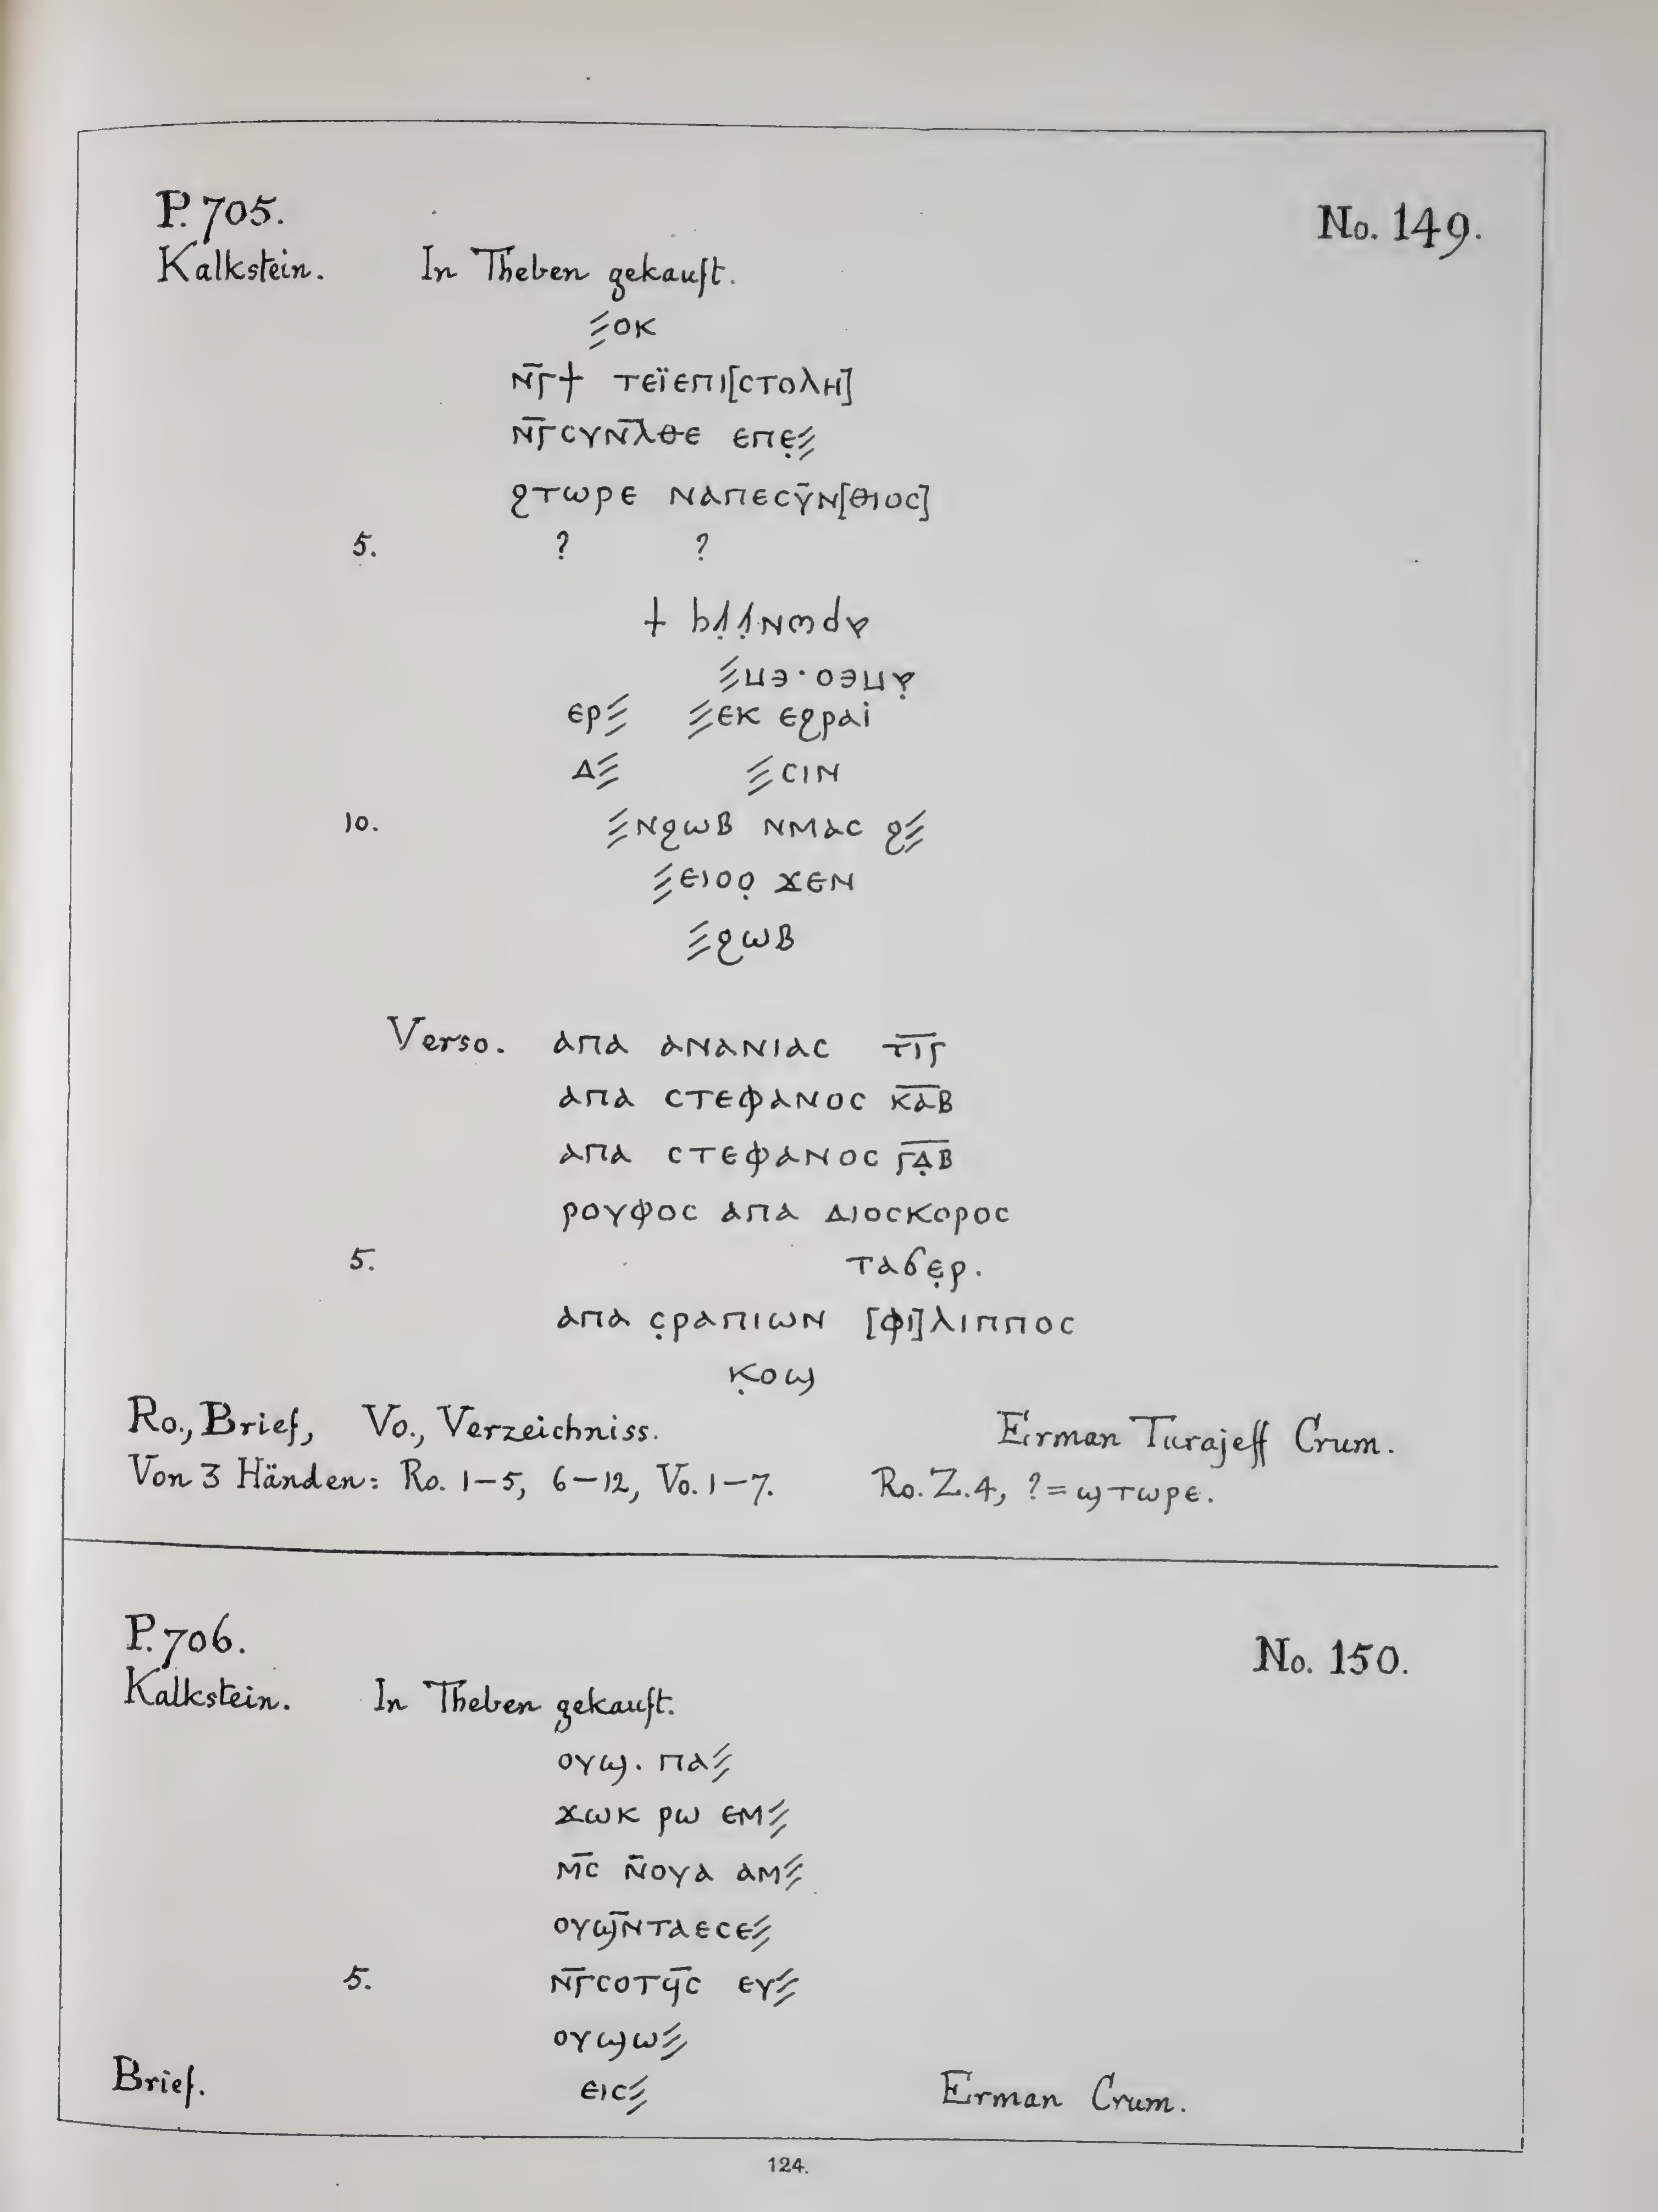 P. 705.
No. 149.
Kalkstein. In Theben gekauft.
⫻ⲟⲕ
ⲛ̅ⲅ̅ϯ ⲧⲉⲓ̈ⲉⲡⲓ[ⲥⲧⲟⲗⲏ]
ⲛ̅ⲅ̅ⲥⲩⲛ̅ⲗ̅ⲑⲉ ⲉⲡⲉ̣⫻
ϩⲧⲱⲣⲉ ⲛⲁⲡⲉⲥⲩ̅ⲛ[ⲑⲓⲟⲥ]
5. ? ?
⫻ⲡⲉ·ⲟⲉⲡⲁ̣
ⲉⲣ⫻ ⫻ⲉⲕ ⲉϩⲣⲁⲓ
ⲇ⫻ ⫻ⲥⲓⲛ
10. ⫻ⲛϩⲱⲃ ⲛⲙⲁⲥ ϩ⫻
⫻ⲉⲓⲟⲟ̣ ϫⲉⲛ
⫻ϩⲱⲃ
Verso. ⲁⲡⲁ ⲁⲛⲁⲛⲓⲁⲥ ⲧ̅ⲓ̅ⲅ̅
ⲁⲡⲁ ⲥⲧⲉⲫⲁⲛⲟⲥ ⲕ̅ⲁ̅ⲃ
ⲁⲡⲁ ⲥⲧⲉⲫⲁⲛⲟⲥ ⲅ̅ⲇ̣̅ⲃ̅
ⲣⲟⲩⲫⲟⲥ ⲁⲡⲁ ⲇⲓⲟⲥⲕⲟⲣⲟⲥ
5. ⲧⲁϭⲉ̣ⲣ.
ⲁⲡⲁ ⲥ̣ⲣⲁⲡⲓⲱⲛ [ⲫⲓ]ⲗⲓⲡⲡⲟⲥ
ⲕ̣ⲟϣ
Ro., Brief, Vo., Verzeichniss. Erman Turajeff Crum.
Von 3 Händen: Ro. 1–5, 6–12, Vo. 1–7. Ro. Z. 4, ? = ϣⲧⲱⲣⲉ.
P. 706.
No. 150.
Kalkstein. In Theben gekauft.
ⲟⲩϣ. ⲡⲁ⫻
ϫⲱⲕ ⲣⲱ ⲉⲙ⫻
ⲙ̅ⲥ ⲛ̅ⲟⲩⲁ ⲁⲙ⫻
ⲟⲩϣ̅ⲛ̅ⲧⲁⲉⲥⲉ⫻
5. ⲛ̅ⲅ̅ⲥⲟⲧϥ̅ⲥ ⲉⲩ⫻
ⲟⲩϣⲱ⫻
ⲉⲓⲥ⫻
Brief. Erman Crum.
124.